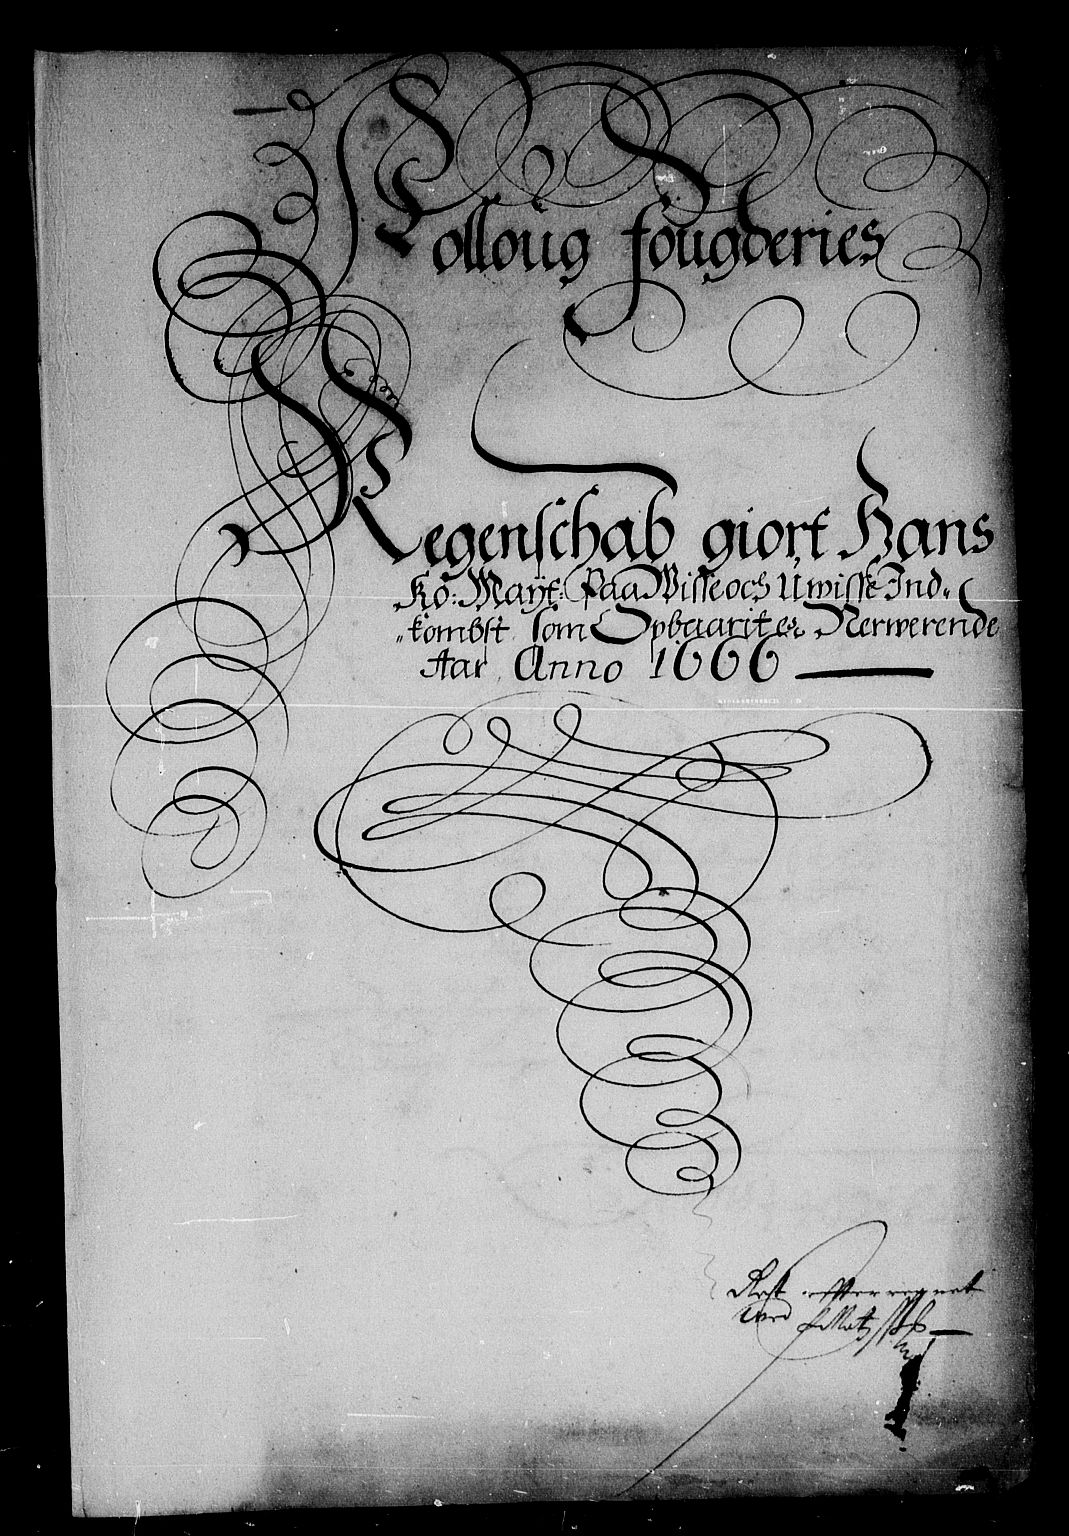 Folloug fougderies
Regenschab giort Hans
Kö: Mayt: Paa Wisse och Uwisse Ind„
„kombst som Opbaarit er Nerwerende
Aar Anno 1666
Rest effterregnet
wed